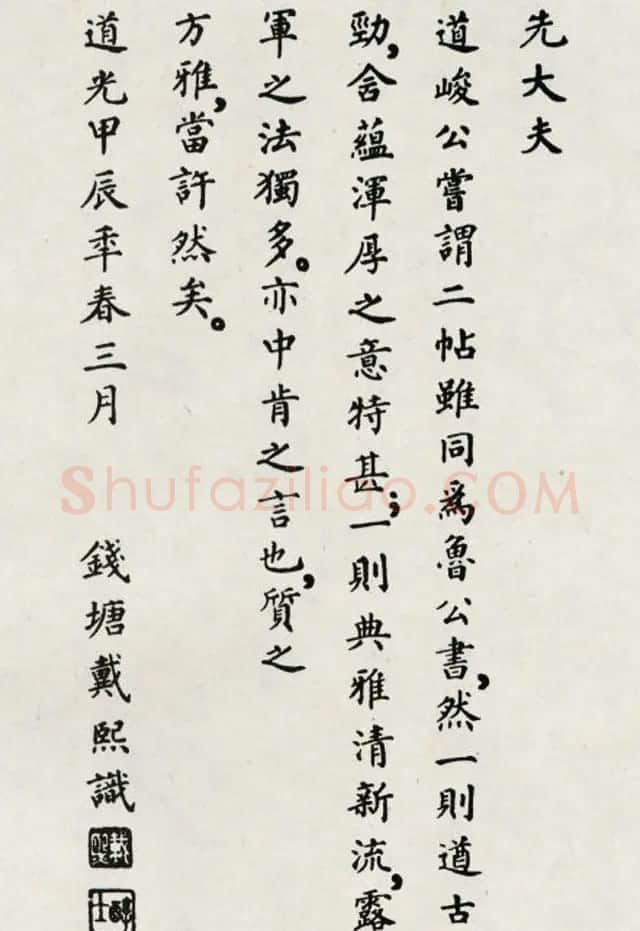 先大夫
道峻公嘗謂二帖雖同爲魯公書，然一則遒古
勁，含蘊渾厚之意特甚；一則典雅清新流，露
軍之法獨多。亦中肯之言也，質之
方雅，當許然矣。
道光甲辰季春三月 錢塘戴熙識
戴熙
醇士
Shufaziliao.COM